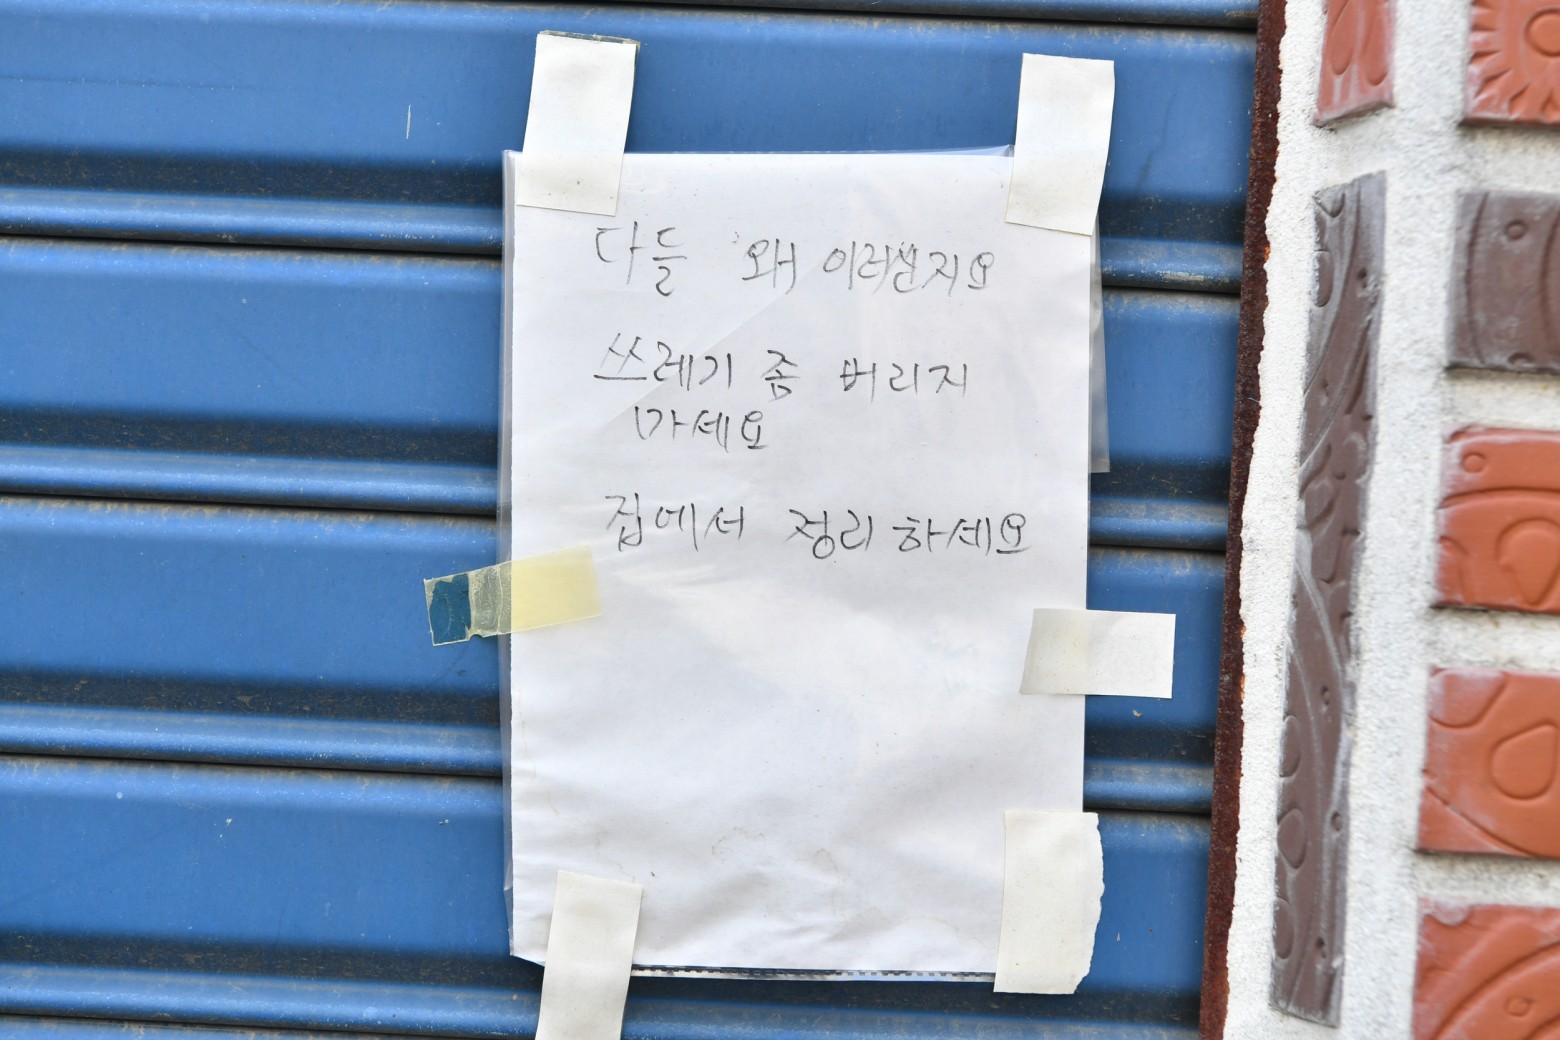 다들 왜 이러신지요
쓰레기 좀 버리지
마세요
집에서 정리 하세요